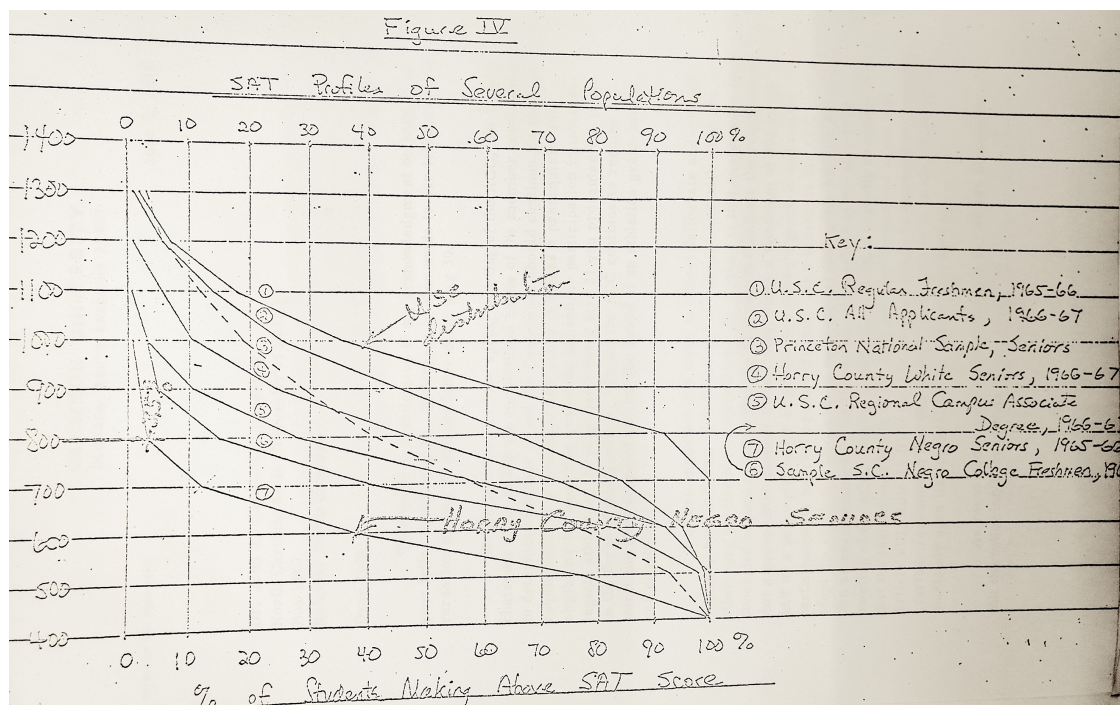 Figure IV
SAT Profiles of Several Populations
0 10 20 30 40 50 60 70 80 90 100%
1400
1300
1200
1100
1000
900
800
700
600
500
400
① ② ③ ④ ⑤ ⑥ ⑦
U.S.C.
Distribution
Key:
① U.S.C. Regular Freshmen, 1965-66
② U.S.C. All Applicants, 1966-67
③ Princeton National Sample, Seniors
④ Horry County White Seniors, 1966-67
⑤ U.S.C. Regional Campus Associate
Degree, 1966-6
⑦ Horry County Negro Seniors, 1965-66
⑥ Sample S.C. Negro College Freshmen, 19
Horry County Negro Seniors
0 10 20 30 40 50 60 70 80 90 100%
% of Students Making Above SAT Score